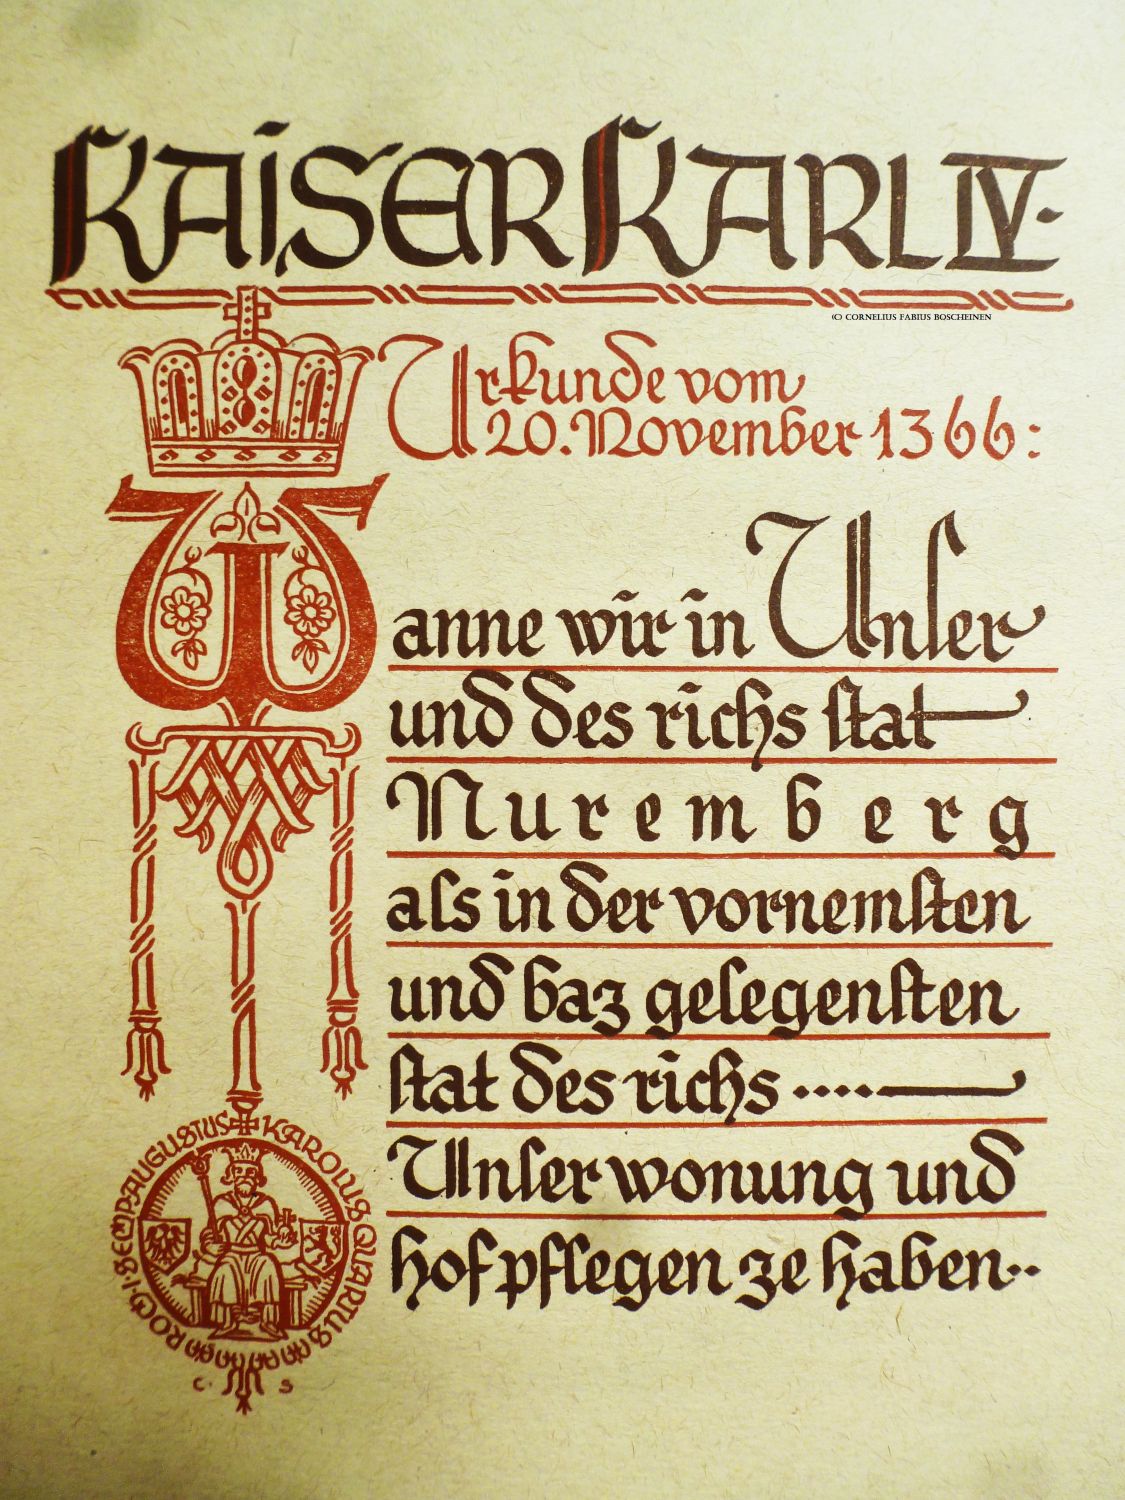 KAiSER KARL IV.
(C) CORNELIUS FABIUS BOSCHEINEN
Urkunde vom
20. November 1366:
Wanne wir in Unser
und des richs stat
Nuremberg
als in der vornemsten
und baz gelegensten
stat des richs ....
Unser wonung und
hof pflegen ze haben..
KAROLUS QUARTUS
ROM·I·SEMP AUGUSTUS
C· S